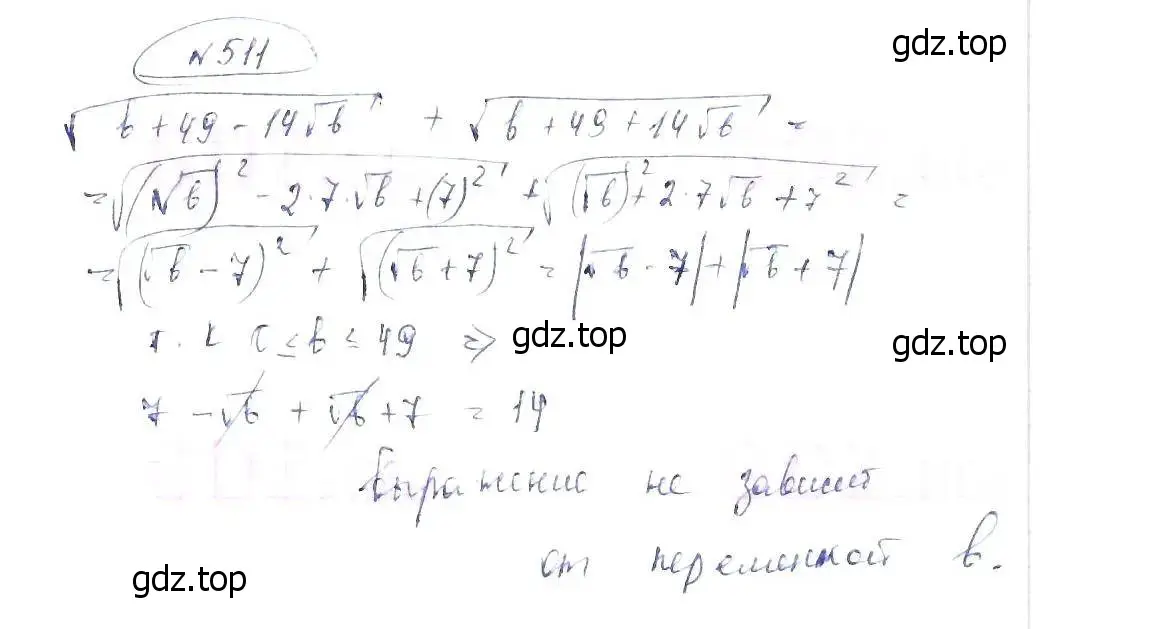 №511
gdz.top
√(b + 49 - 14√b) + √(b + 49 + 14√b) =
= √((√b)² - 2·7·√b + (7)²) + √((√b)² + 2·7√b + 7²) =
= √((√b - 7)²) + √((√b + 7)²) = |√b - 7| + |√b + 7|
т. к 0 ≤ b ≤ 49 ⇒ gdz.top gdz.top
7 - √b + √b + 7 = 14
Выражение не зависит
от переменной b.
gdz.top